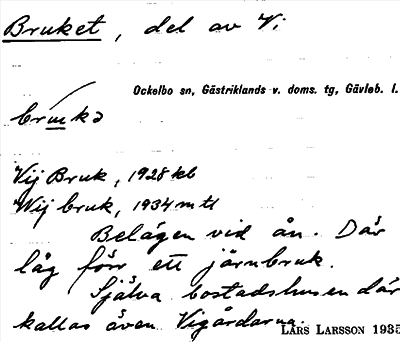 Bruket, del av Vi
Ockelbo sn, Gästriklands v. doms. tg, Gävleb. l.
Vij Bruk, 1928 kb
Wij bruk, 1934 mtl
Belägen vid ån. Där
låg förr ett järnbruk.
Själva bostadshusen där
kallas även Vigårdarna.
LARS LARSSON 1935